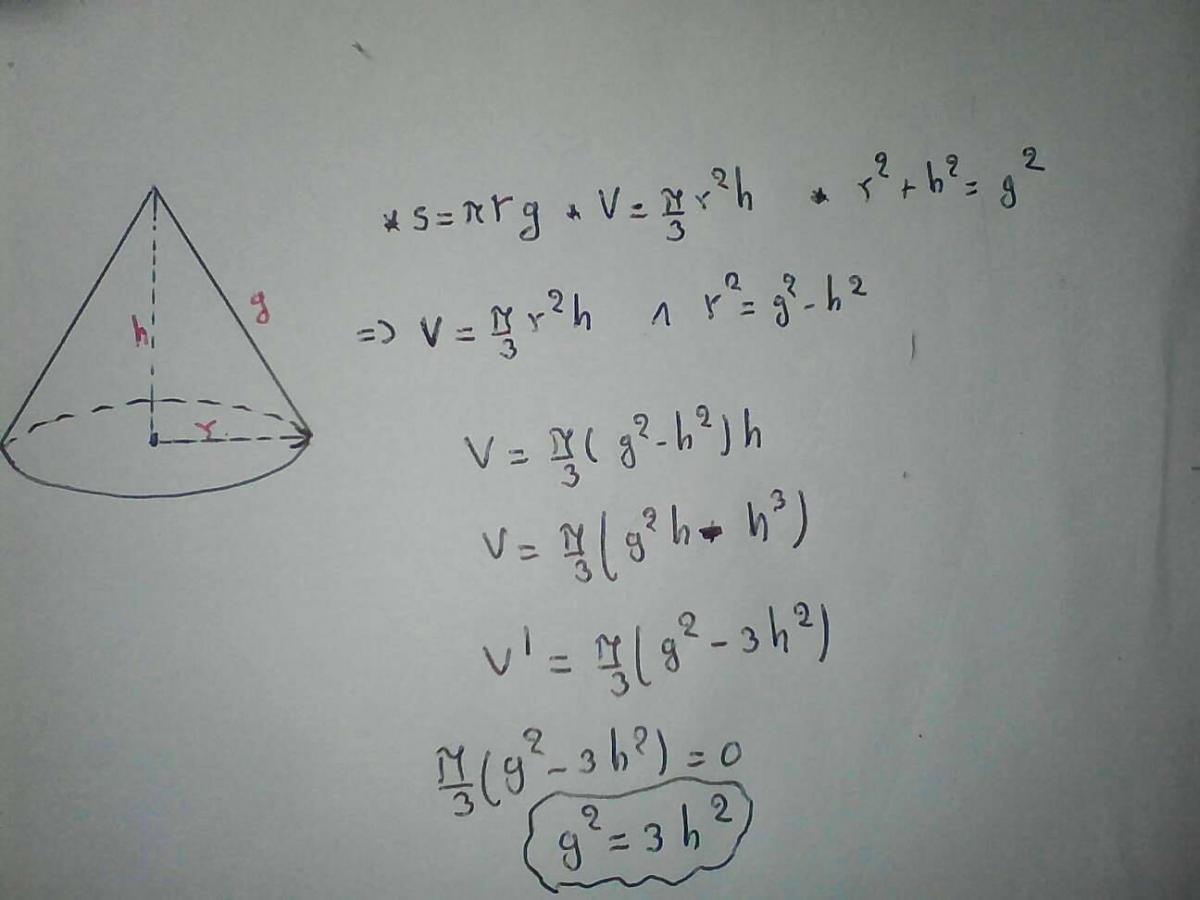 * S = πrg * V = π/3 r²h * r² + h² = g²
=> V = π/3 r²h ∧ r² = g² - h²
h
g
r
V = π/3 (g² - h²) h
V = π/3 (g²h - h³)
V' = π/3 (g² - 3h²)
π/3 (g² - 3h²) = 0
g² = 3h²